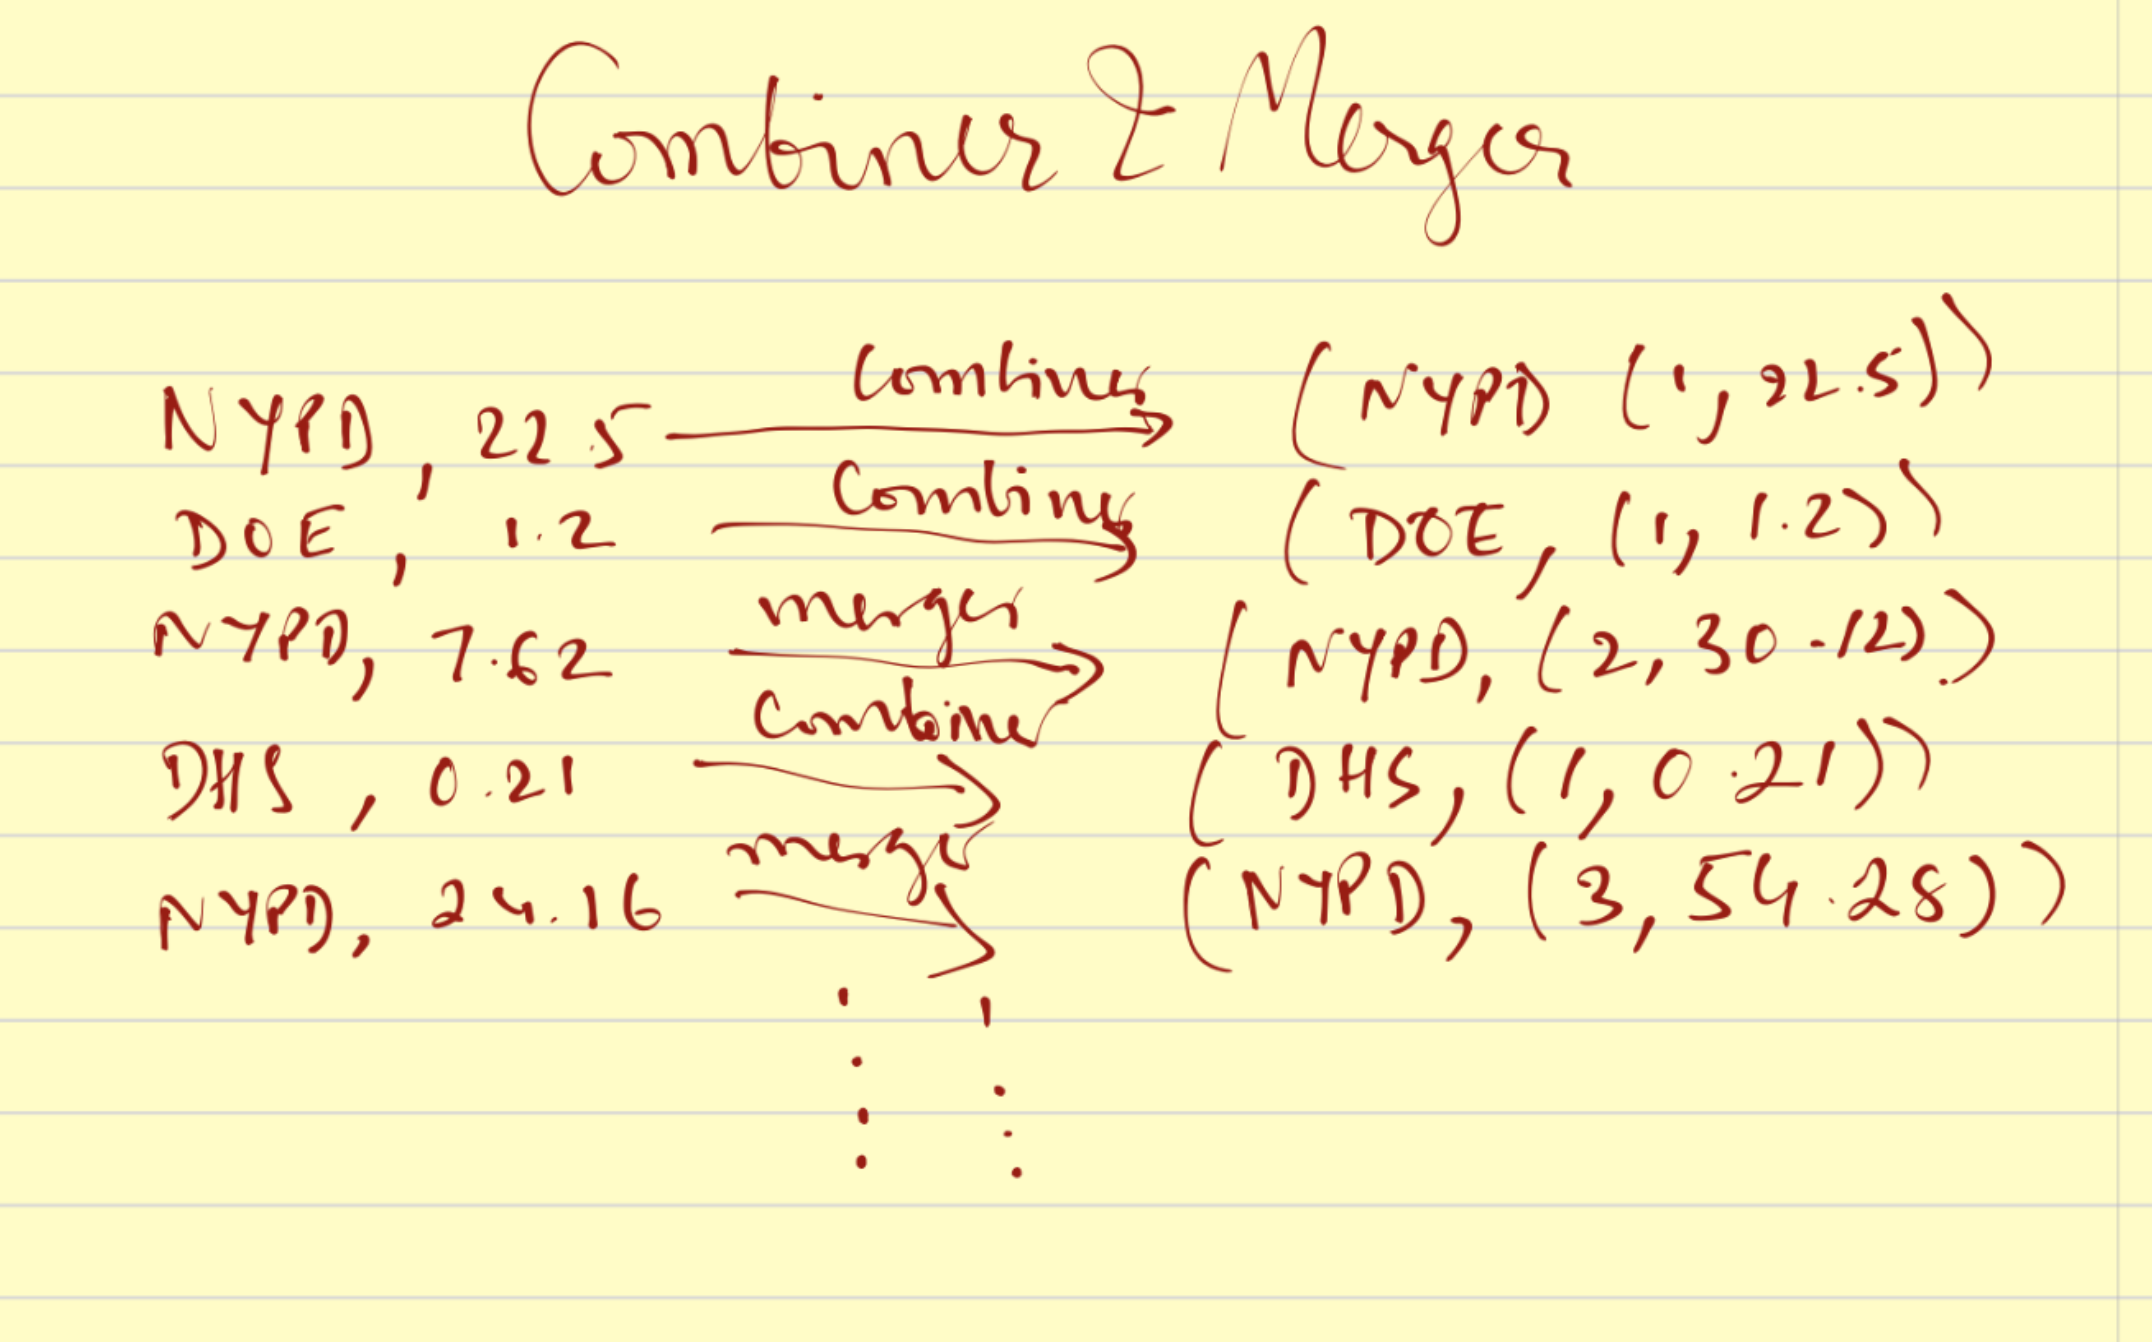 Combiner & Merger
NYPD, 22.5 Combiner (NYPD (1, 22.5))
DOE, 1.2 Combiner (DOE, (1, 1.2))
NYPD, 7.62 merger (NYPD, (2, 30.12))
DHS, 0.21 Combiner (DHS, (1, 0.21))
NYPD, 24.16 merger (NYPD, (3, 54.28))